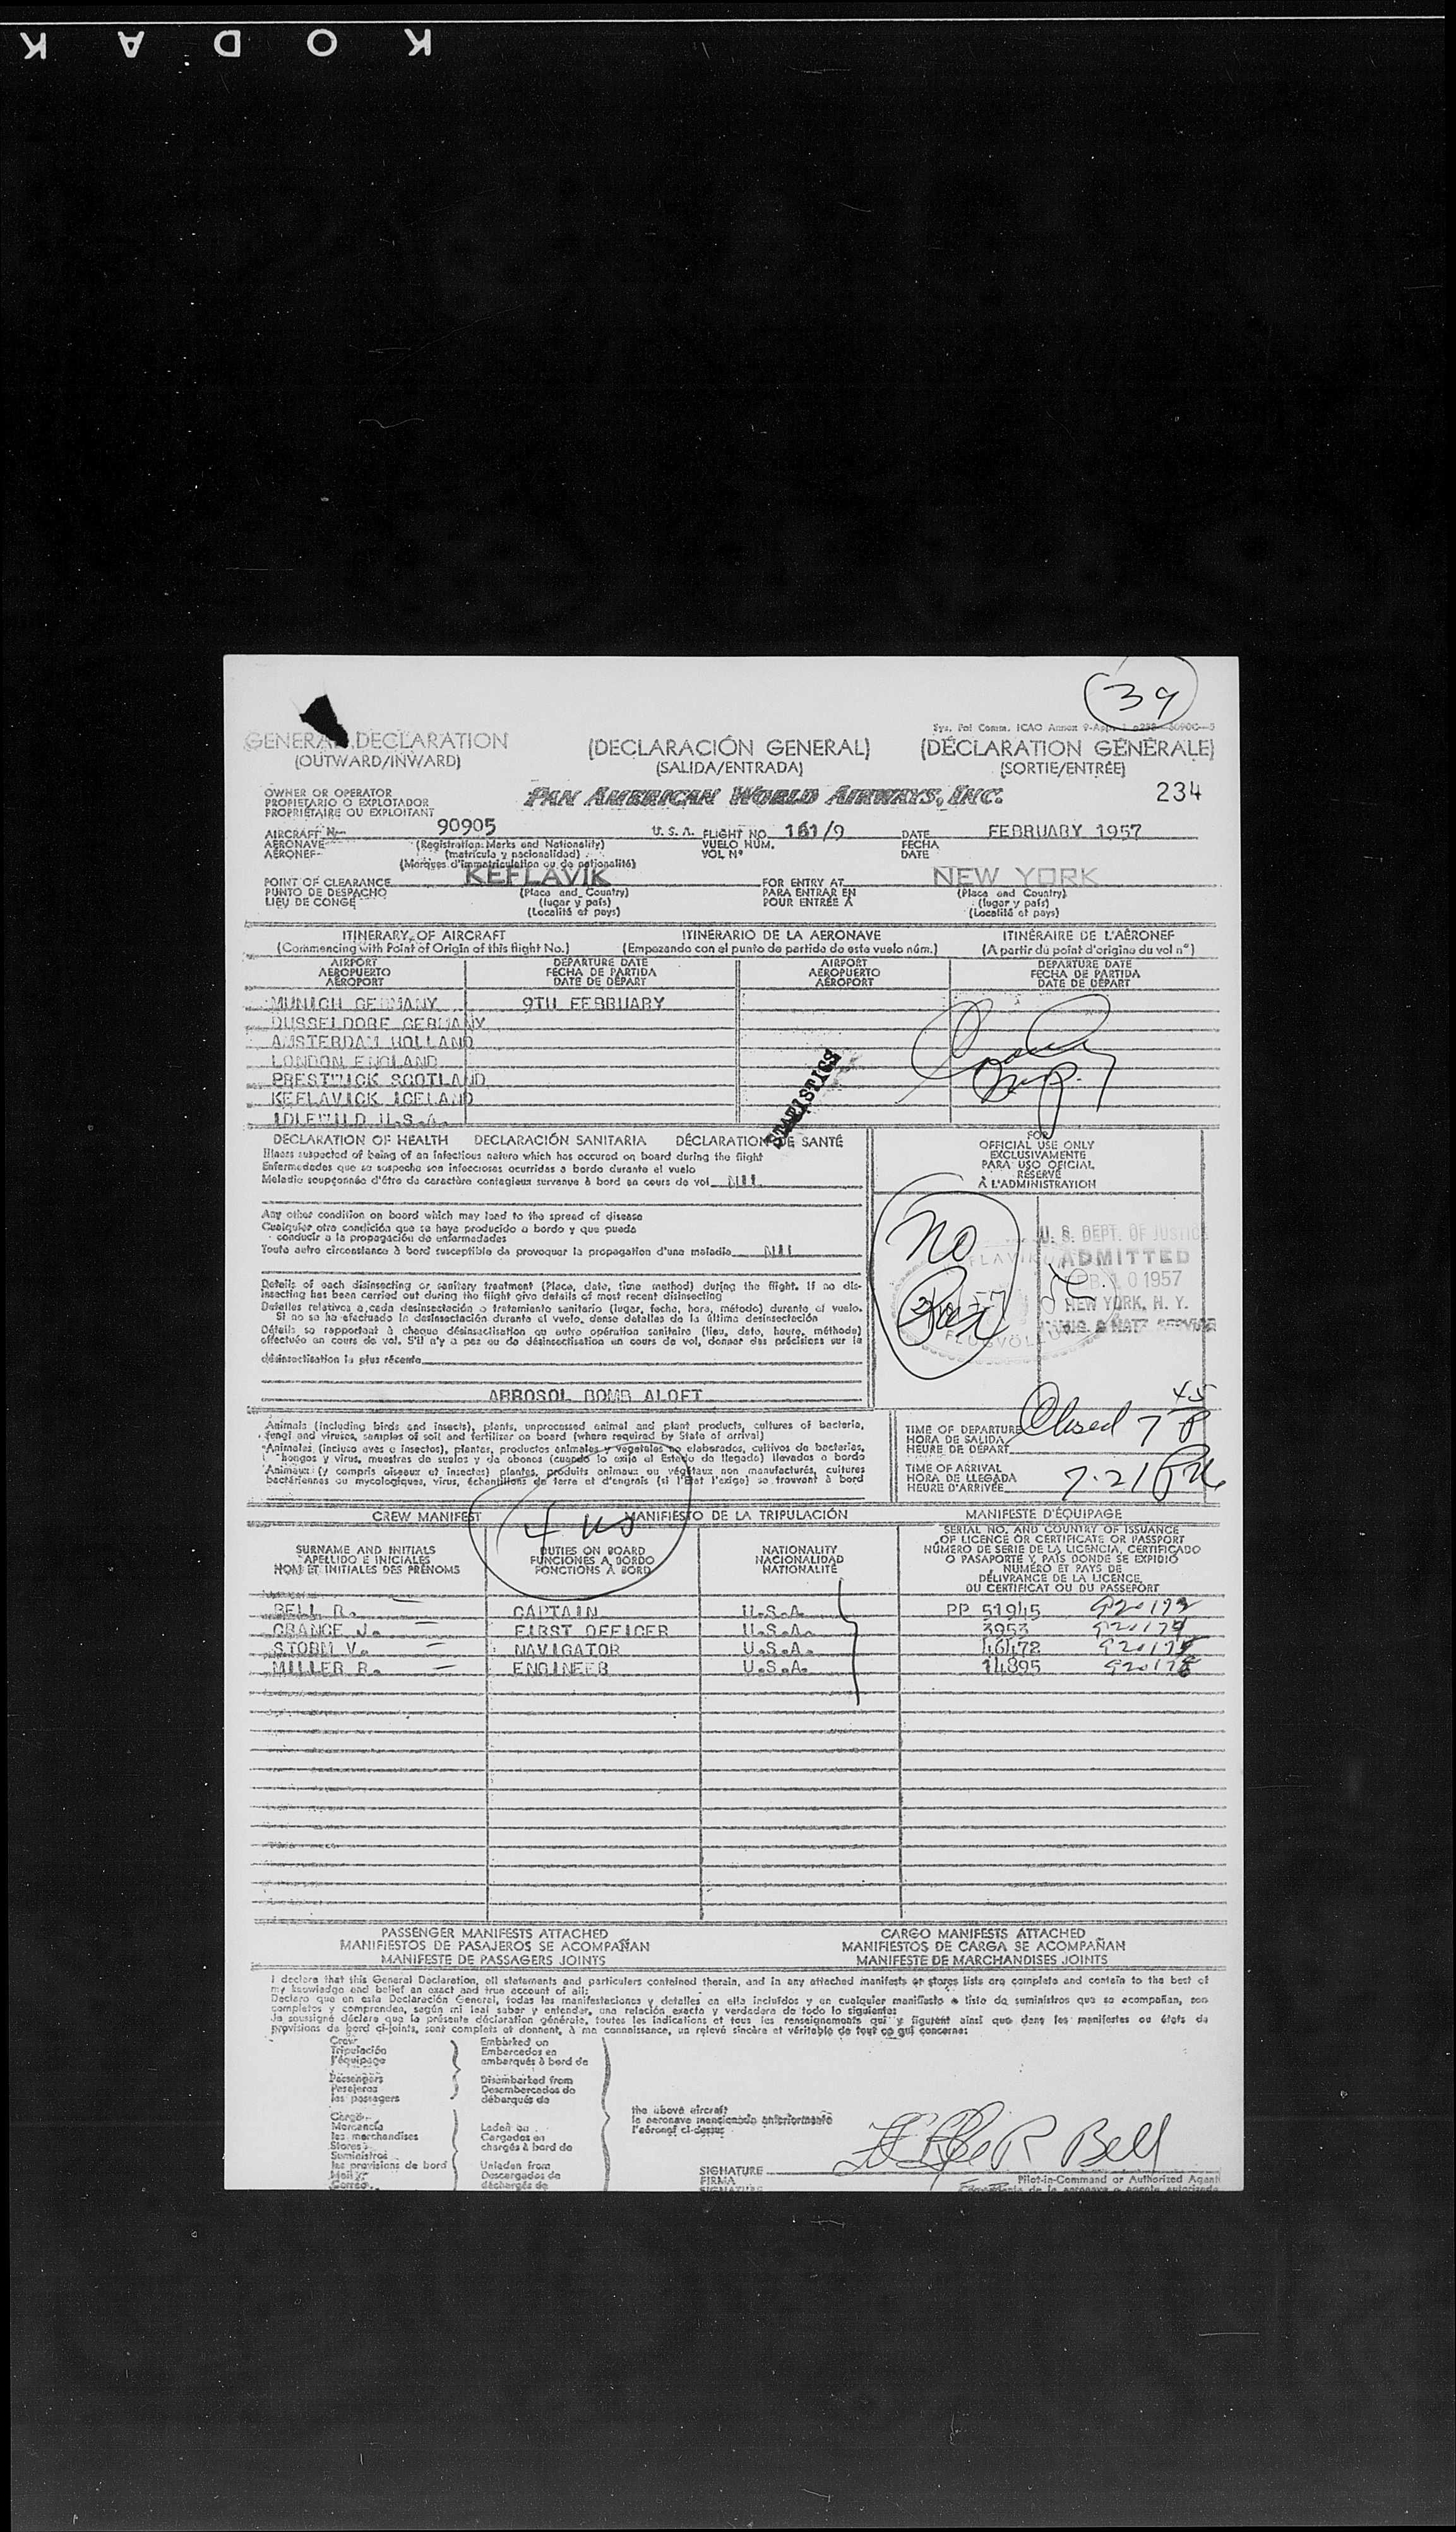 KODAK
39
Sys. Pol Comm. ICAO Annex 9-App. 1
GENERAL DECLARATION (DECLARACIÓN GENERAL) (DÉCLARATION GÉNÉRALE)
(OUTWARD/INWARD) (SALIDA/ENTRADA) (SORTIE/ENTRÉE)
OWNER OR OPERATOR PAN AMERICAN WORLD AIRWAYS, INC. 234
PROPIETARIO O EXPLOTADOR
PROPRIÉTAIRE OU EXPLOITANT
AIRCRAFT N 90905 U. S. A. FLIGHT NO. 161/9 DATE FEBRUARY 1957
AERONAVE (Registration Marks and Nationality) VUELO NUM. FECHA
AÉRONEF (matrícula y nacionalidad) VOL Nº DATE
(Marques d'immatriculation ou de nationalité)
POINT OF CLEARANCE KEFLAVIK FOR ENTRY AT NEW YORK
PUNTO DE DESPACHO (Place and Country) PARA ENTRAR EN (Place and Country)
LIEU DE CONGÉ (lugar y país) POUR ENTRÉE À (lugar y país)
(Localité et pays) (Localité et pays)
ITINERARY OF AIRCRAFT ITINERARIO DE LA AERONAVE ITINÉRAIRE DE L'AÉRONEF
(Commencing with Point of Origin of this flight No.) (Empezando con el punto de partida de este vuelo núm.) (A partir du point d'origine du vol n°)
AIRPORT DEPARTURE DATE AIRPORT DEPARTURE DATE
AEROPUERTO FECHA DE PARTIDA AEROPUERTO FECHA DE PARTIDA
AÉROPORT DATE DE DÉPART AÉROPORT DATE DE DÉPART
MUNICH GERMANY 9TH FEBRUARY
DUSSELDORF GERMANY
AMSTERDAM HOLLAND
LONDON ENGLAND
PRESTWICK SCOTLAND
KEFLAVICK ICELAND
IDLEWILD U.S.A.
STATISTICS
DECLARATION OF HEALTH DECLARACIÓN SANITARIA DÉCLARATION DE SANTÉ
Illness suspected of being of an infectious nature which has occured on board during the flight
Enfermedades que se sospeche son infecciosas ocurridas a bordo durante el vuelo
Maladie soupçonnée d'être de caractère contagieux survenue à bord en cours de vol NIL
Any other condition on board which may lead to the spread of disease
Cualquier otra condición que se haya producido a bordo y que pueda
conducir a la propagación de enfermedades
Toute autre circonstance à bord susceptible de provoquer la propagation d'une maladie NIL
Details of each disinsecting or sanitary treatment (Place, date, time method) during the flight. If no dis-
insecting has been carried out during the flight give details of most recent disinsecting
Detalles relativos a cada desinsectación o tratamiento sanitario (lugar, fecha, hora, método) durante el vuelo.
Si no se ha efectuado la desinsectación durante el vuelo, dense detalles de la última desinsectación
Détails se rapportant à chaque désinsectisation ou autre opération sanitaire (lieu, date, heure, méthode)
effectuée en cours de vol. S'il n'y a pas eu de désinsectisation en cours de vol, donner des précisions sur la
désinsectisation la plus récente
AEROSOL BOMB ALOFT
FOR
OFFICIAL USE ONLY
EXCLUSIVAMENTE
PARA USO OFICIAL
RÉSERVÉ
À L'ADMINISTRATION
No
Pax
U. S. DEPT. OF JUSTICE
ADMITTED
FEB. 10 1957
NEW YORK, N. Y.
IMMIG. & NATZ. SERVICE
Animals (including birds and insects), plants, unprocessed animal and plant products, cultures of bacteria,
fungi and viruses, samples of soil and fertilizer on board (where required by State of arrival)
Animales (incluso aves e insectos), plantas, productos animales y vegetales no elaborados, cultivos de bacterias,
hongos y virus, muestras de suelos y de abonos (cuando lo exija el Estado de llegada) llevados a bordo
Animaux (y compris oiseaux et insectes) plantes, produits animaux ou végétaux non manufacturés, cultures
bactériennes ou mycologiques, virus, échantillons de terre et d'engrais (si l'État l'exige) se trouvant à bord
TIME OF DEPARTURE Closed 7 45 P
HORA DE SALIDA
HEURE DE DÉPART
TIME OF ARRIVAL 7-21 PM
HORA DE LLEGADA
HEURE D'ARRIVÉE
CREW MANIFEST MANIFIESTO DE LA TRIPULACIÓN MANIFESTE D'ÉQUIPAGE
4 us
SURNAME AND INITIALS DUTIES ON BOARD NATIONALITY SERIAL NO. AND COUNTRY OF ISSUANCE
APELLIDO E INICIALES FUNCIONES A BORDO NACIONALIDAD OF LICENCE OR CERTIFICATE OR PASSPORT
NOM ET INITIALES DES PRÉNOMS FONCTIONS À BORD NATIONALITÉ NÚMERO DE SERIE DE LA LICENCIA, CERTIFICADO
O PASAPORTE Y PAÍS DONDE SE EXPIDIÓ
NUMÉRO ET PAYS DE
DÉLIVRANCE DE LA LICENCE,
DU CERTIFICAT OU DU PASSEPORT
BELL R. CAPTAIN U.S.A. PP 51945
GRANCE J. FIRST OFFICER U.S.A. 3953
STORM V. NAVIGATOR U.S.A. 46472
MILLER R. ENGINEER U.S.A. 14895
PASSENGER MANIFESTS ATTACHED CARGO MANIFESTS ATTACHED
MANIFIESTOS DE PASAJEROS SE ACOMPAÑAN MANIFIESTOS DE CARGA SE ACOMPAÑAN
MANIFESTE DE PASSAGERS JOINTS MANIFESTE DE MARCHANDISES JOINTS
I declare that this General Declaration, all statements and particulars contained therein, and in any attached manifests or stores lists are complete and contain to the best of
my knowledge and belief an exact and true account of all:
Declaro que en esta Declaración General, todas las manifestaciones y detalles en ella incluídos y en cualquier manifiesto o lista de suministros que se acompañan, son
completos y comprenden, según mi leal saber y entender, una relación exacta y verdadera de todo lo siguiente:
Je soussigné déclare que la présente déclaration générale, toutes les indications et tous les renseignements qui y figurent ainsi que dans les manifestes ou états de
provisions de bord ci-joints, sont complets et donnent, à ma connaissance, un relevé sincère et véritable de tout ce qui concerne:
Crew Embarked on
Tripulación Embarcados en
l'équipage embarqués à bord de
Passengers Disembarked from
Pasajeros Desembarcados de
les passagers débarqués de
Cargo the above aircraft
Mercancía Laden on la aeronave mencionada anteriormente
les marchandises Cargados en l'aéronef ci-dessus
Stores chargés à bord de
Suministros
les provisions de bord Unladen from
Mail Descargados de
Correo déchargés de
SIGNATURE R Bell
FIRMA Pilot-in-Command or Authorized Agent
SIGNATURE